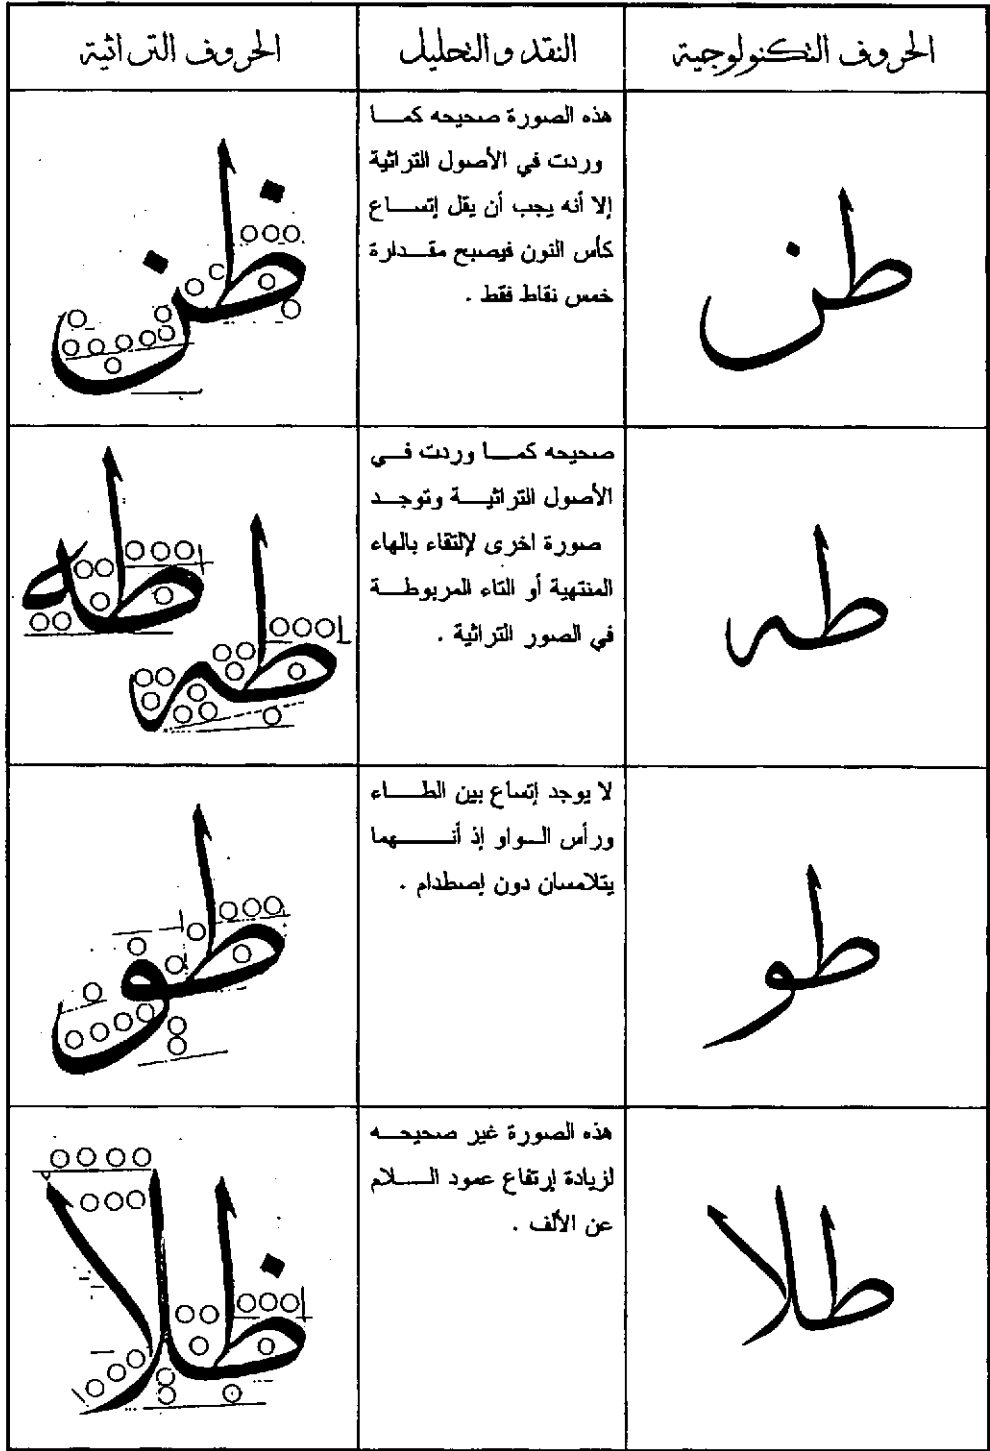 الحروف التكنولوجية
النقد والتحليل
الحروف التراثية
طن
هذه الصورة صحيحه كما
وردت في الأصول التراثية
إلا أنه يجب أن يقل إتساع
كأس النون فيصبح مقدارة
خمس نقاط فقط .
ظن
طه
صحيحه كما وردت في
الأصول التراثية وتوجد
صورة اخرى لإلتقاء بالهاء
المنتهية أو التاء المربوطة
في الصور التراثية .
طه
طه
طو
لا يوجد إتساع بين الطاء
ورأس الواو إذ أنهما
يتلامسان دون إصطدام .
طو
طلا
هذه الصورة غير صحيحه
لزيادة إرتفاع عمود السلام
عن الألف .
ظلا